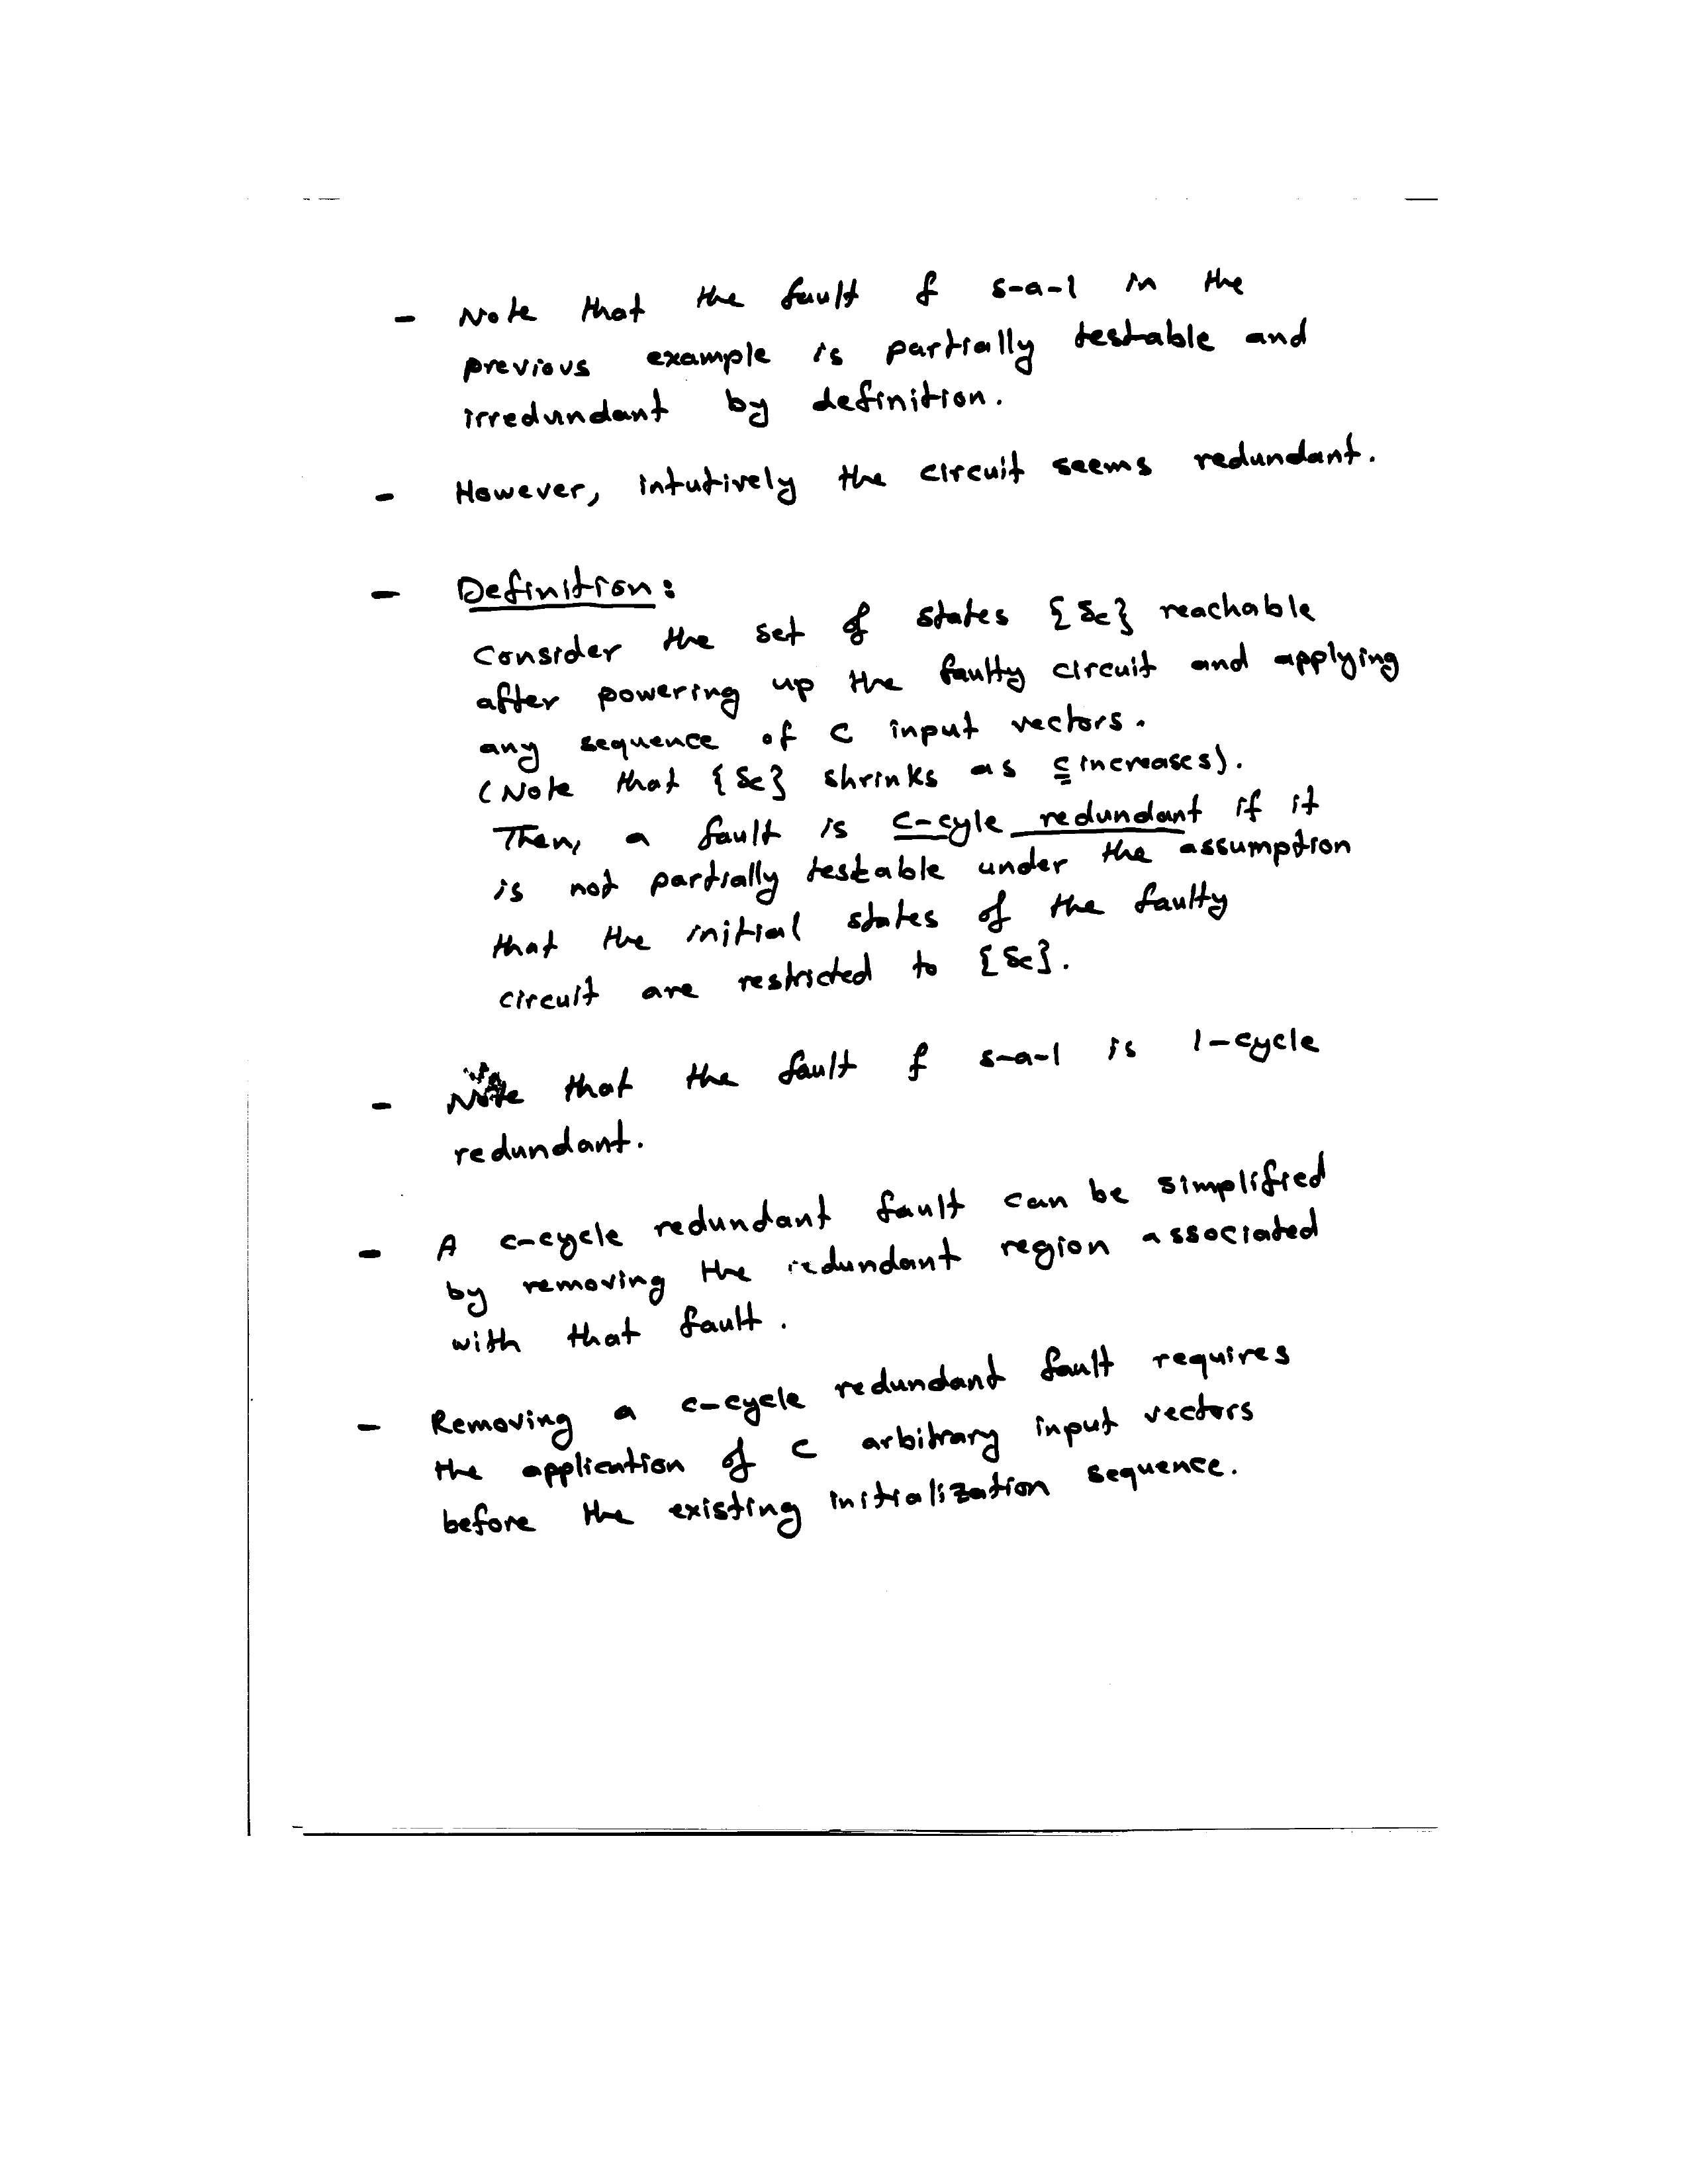 - Note that the fault f s-a-1 in the
previous example is partially testable and
irredundant by definition.
- However, intutively the circuit seems redundant.
- Definition:
Consider the set of states {Sc} reachable
after powering up the faulty circuit and applying
any sequence of C input vectors.
(Note that {Sc} shrinks as c increases).
Then, a fault is c-cyle redundant if it
is not partially testable under the assumption
that the initial states of the faulty
circuit are restricted to {Sc}.
- Note that the fault f s-a-1 is 1-cycle
redundant.
- A c-cycle redundant fault can be simplified
by removing the redundant region associated
with that fault.
- Removing a c-cycle redundant fault requires
the application of C arbitrary input vectors
before the existing initialization sequence.